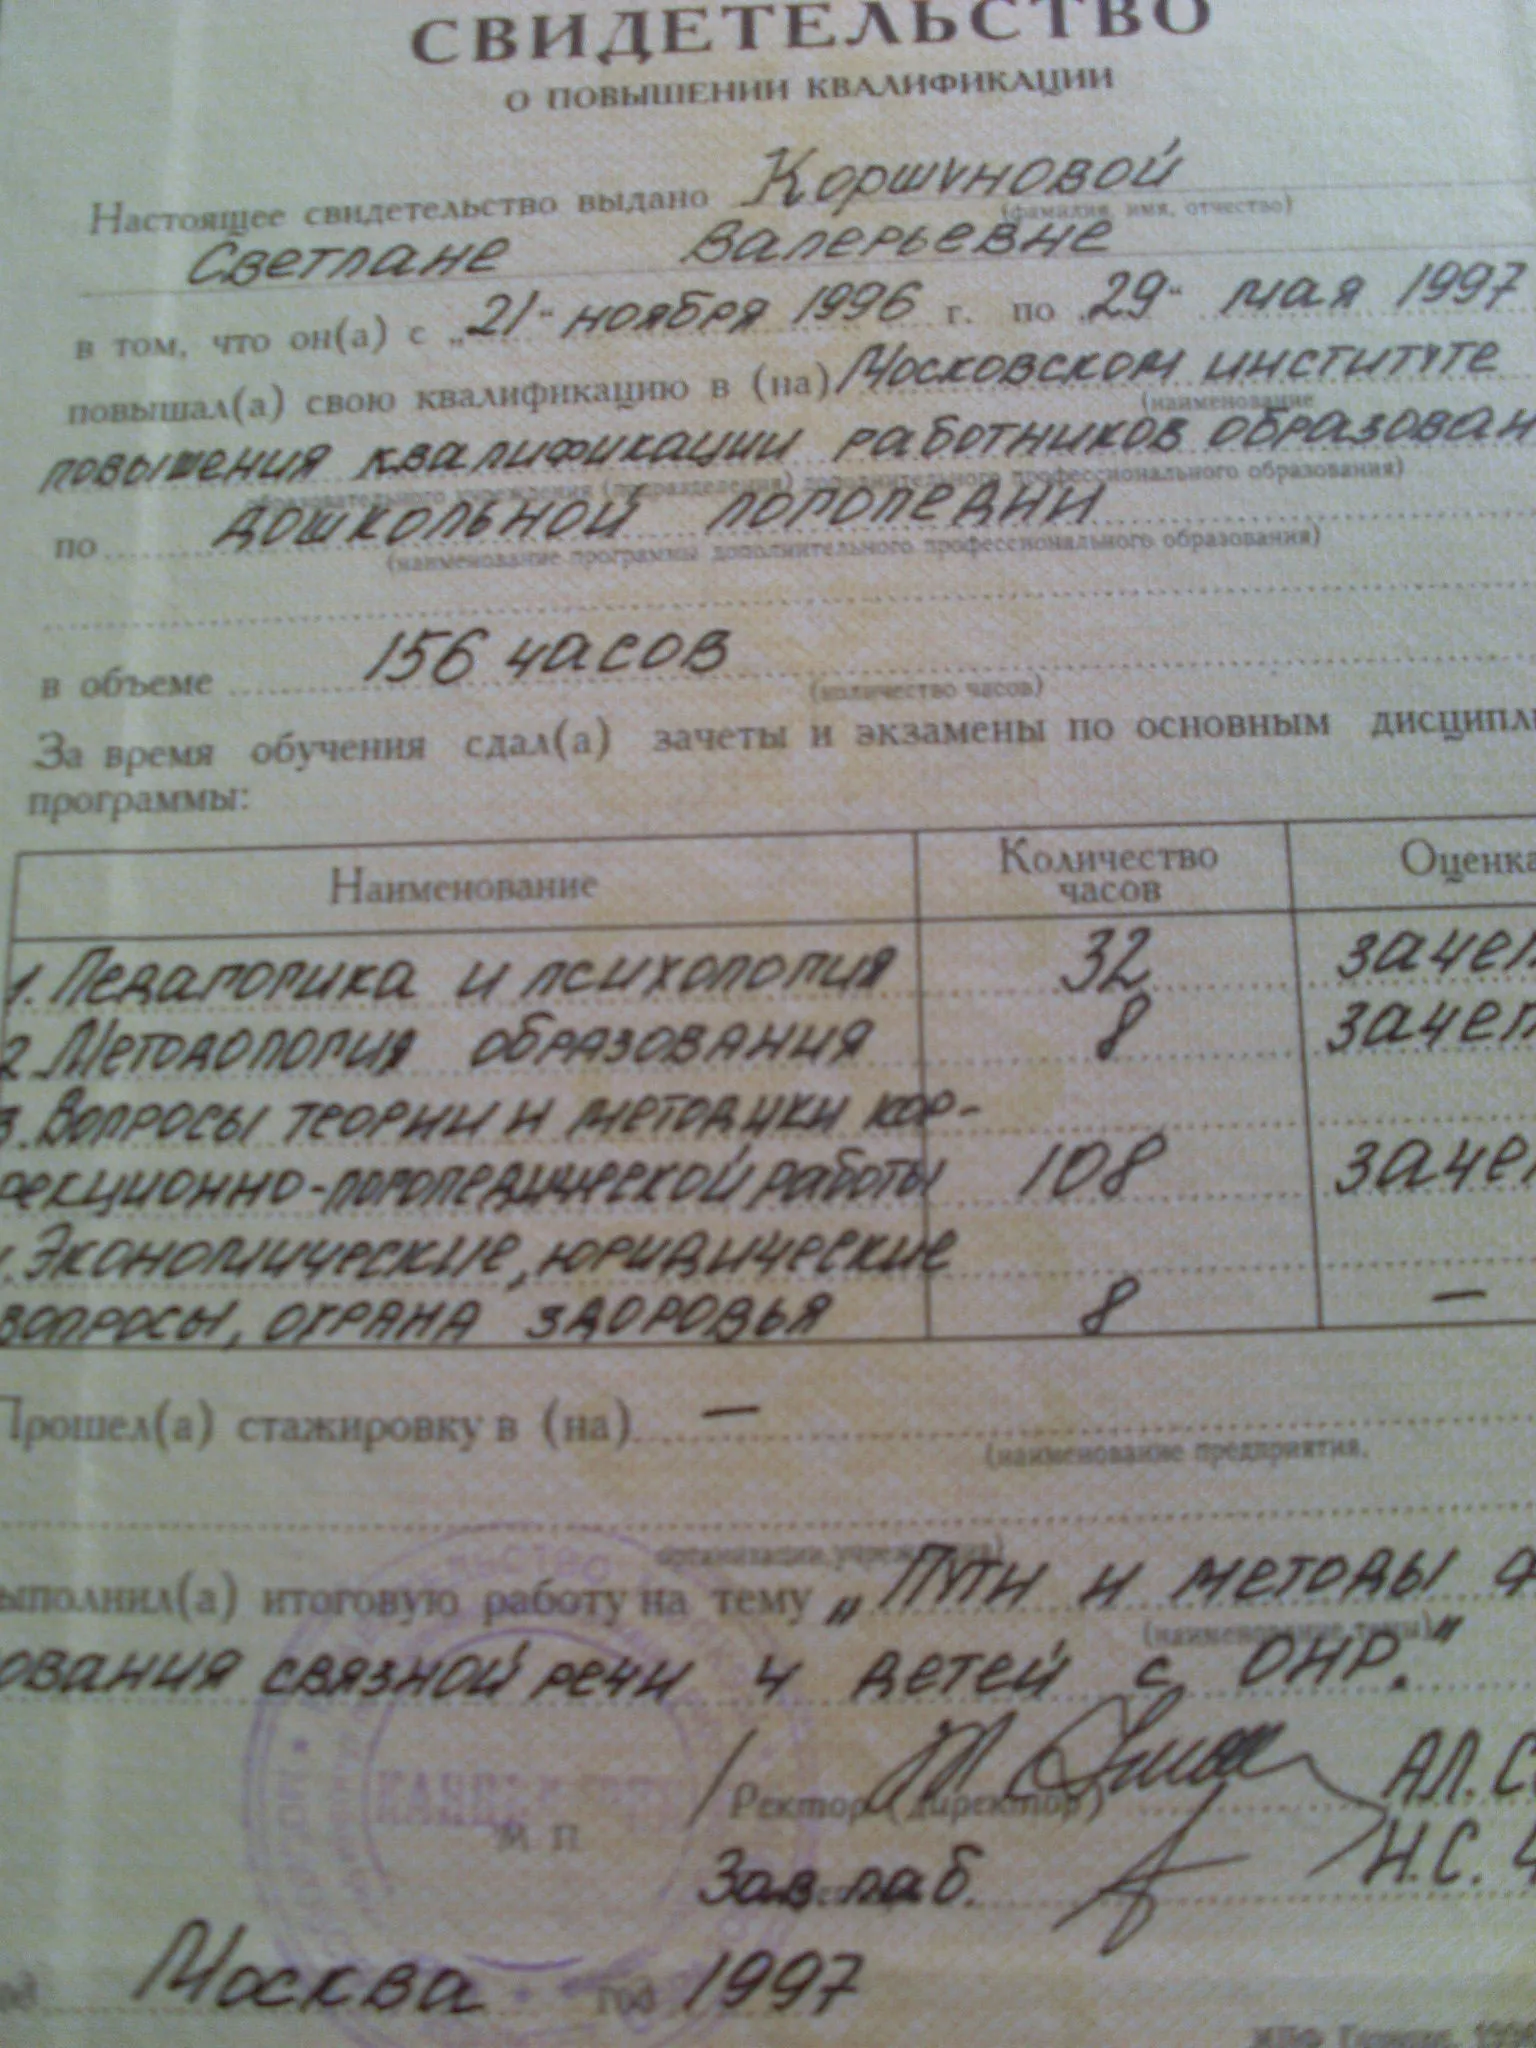 СВИДЕТЕЛЬСТВО
О ПОВЫШЕНИИ КВАЛИФИКАЦИИ
Настоящее свидетельство выдано Коршуновой
(фамилия, имя, отчество)
Светлане Валерьевне
в том, что он(а) с „21" ноября 1996 г. по „29" мая 1997
повышал(а) свою квалификацию в (на) Московском институте
(наименование
повышения квалификации работников образован
образовательного учреждения (подразделения) дополнительного профессионального образования)
по дошкольной логопедии
(наименование программы дополнительного профессионального образования)
в объеме 156 часов
(количество часов)
За время обучения сдал(а) зачеты и экзамены по основным дисципл
программы:
Наименование Количество часов Оценка
1. Педагогика и психология 32 зачет
2. Методология образования 8 зачет
3. Вопросы теории и методики кор-
рекционно-логопедической работы 108 зачет
. Экономические, юридические
вопросы, охрана здоровья 8 —
Прошел(а) стажировку в (на) —
(наименование предприятия,
организации, учреждения)
ыполнил(а) итоговую работу на тему „Пути и методы ф
(наименование темы)
ования связной речи у детей с ОНР."
Ректор (директор) А.Л. С
М. П.
Зав. лаб. Н.С.
Москва год 1997